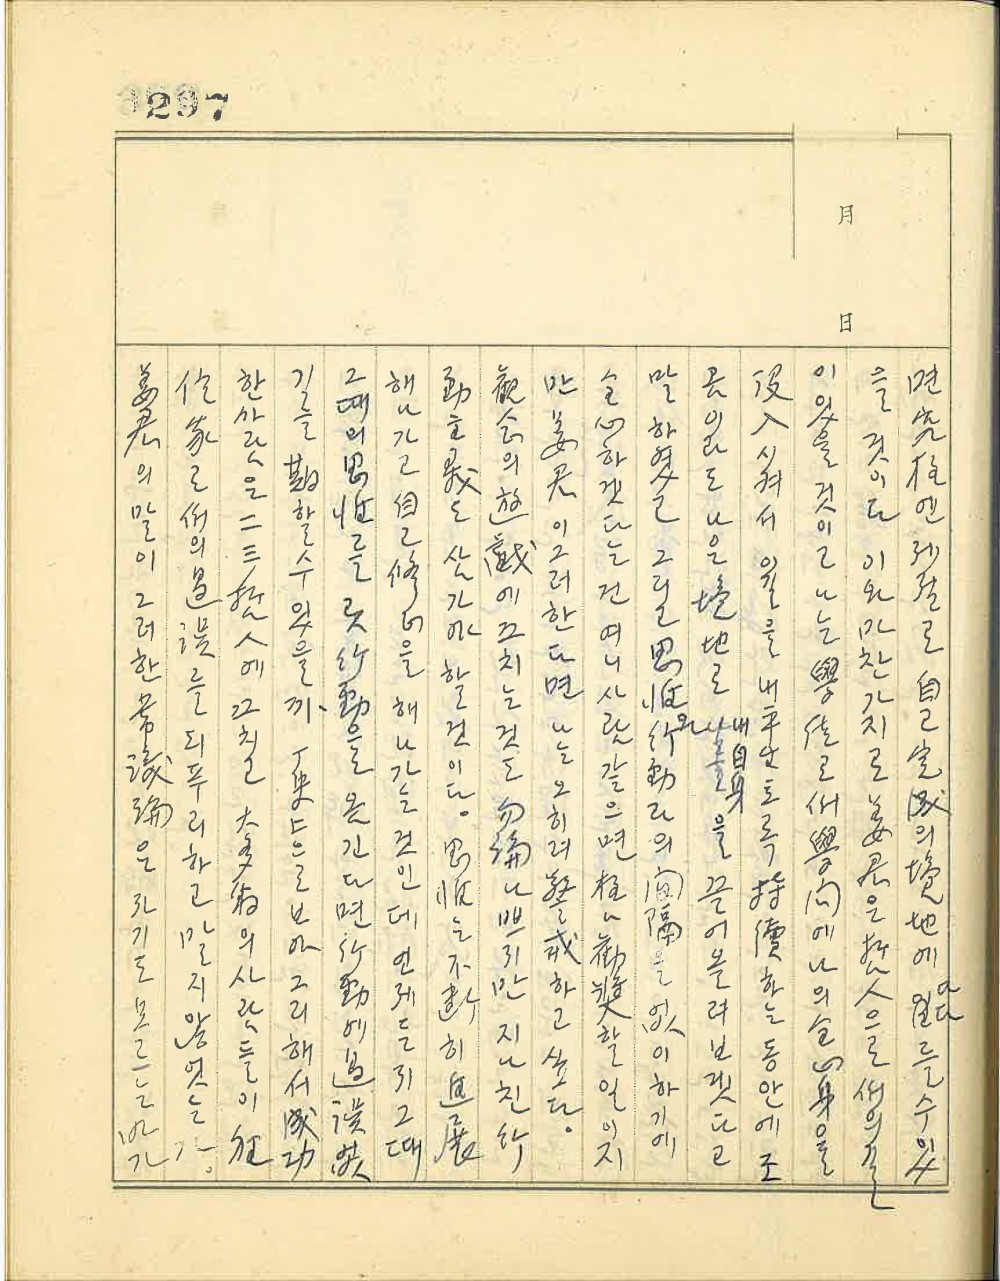 297
月
日
면 언제든지 自己完成의 境地에 이를 수 있
을 것이다 이와 마찬가지로 姜君은 哲人으로서의 길
이 있을 것이고 나는 學徒로서 學问에 나의 全心身을
没入시켜서 이 길을 내 平生토록 持續하는 동안에 조
곰이라도 나은 境地로 내 自身을 끌어올려보겠다고
말하였고 그리고 思惟와 行動과의 间隔을 없이 하기에
全心하겠다는 건 여니 사람 같으면 勸奬할 일이지
만 姜君이 그러한다면 나는 오히려 警戒하고 싶다。
觀念의 遊戱에 끄치는 것도 勿論 나쁘지만 지나친 行
動主義도 삼가야 할 것이다。 思惟는 不断히 進展
해 나가고 自己修正을 해 나가는 것인데 언제든지 그때
그때의 思惟를 곳 行動으로 옮긴다면 行動에 過誤 없
기를 期할 수 있을까、 歷史上으로 보아 그리해서 成功
한 사람은 二三 哲人에 끄치고 大多數의 사람들이
로서의 過誤를 되푸리하고 말지 않엇는가。
姜君의 말이 그러한 常識論은 자기도 모르는 바가